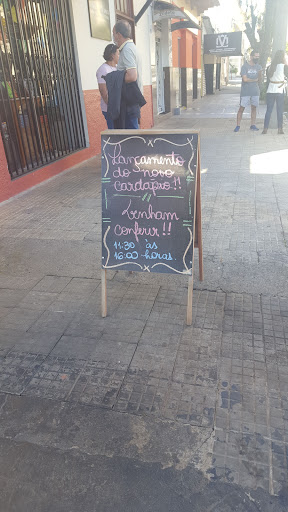 Lançamento
do novo
cardápio!!
Venham
conferir!!
11:30 às
16:00 horas.